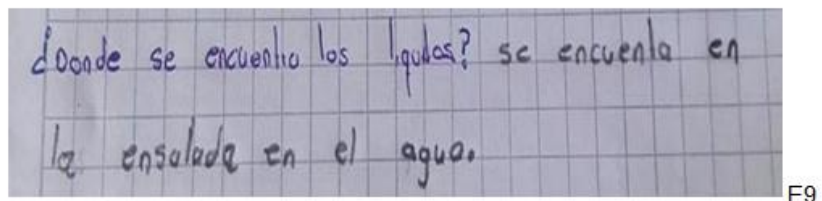 doonde se encuentra los liqudos? se encuenta en
la ensalada en el agua.
E9